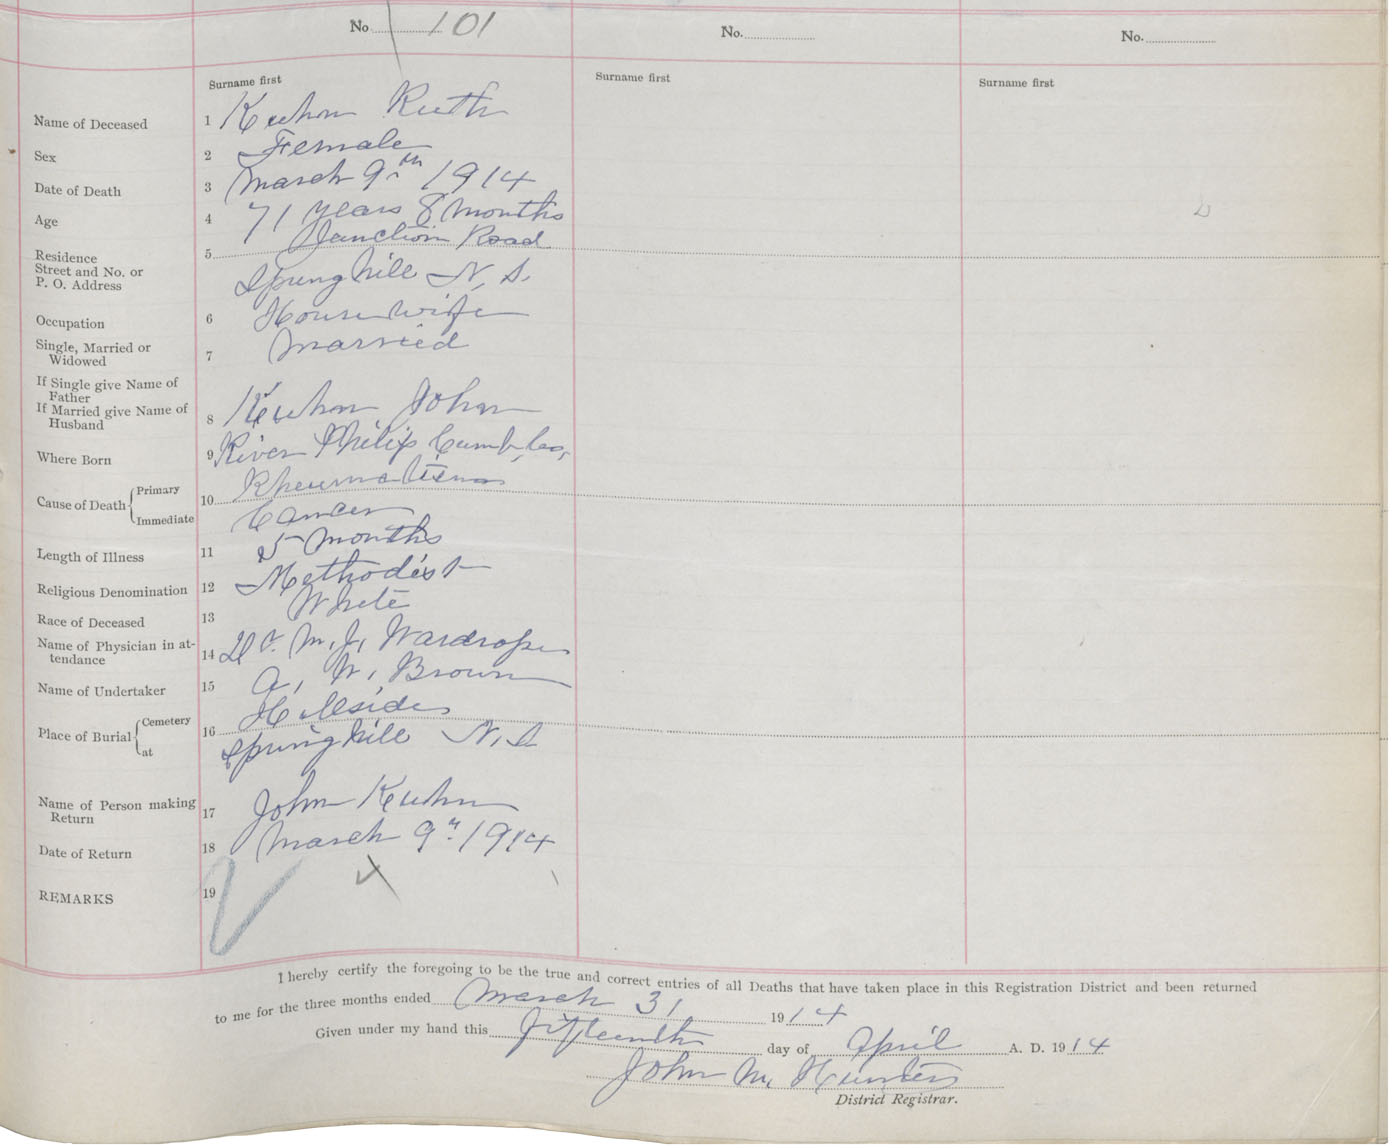 No. 101 No. No.
Surname first Surname first Surname first
Name of Deceased 1 Kuhn Ruth
Sex 2 Female
Date of Death 3 March 9th 1914
Age 4 71 years 8 months
Residence 5 Junction Road
Street and No. or
P. O. Address Springhill N. S.
Occupation 6 House wife
Single, Married or
Widowed 7 Married
If Single give Name of
Father
If Married give Name of
Husband 8 Kuhn John
Where Born 9 River Philip Cumb, Co,
Cause of Death Primary 10 Rheumatism
Immediate Cancer
Length of Illness 11 5 months
Religious Denomination 12 Methodist
Race of Deceased 13 White
Name of Physician in at-
tendance 14 Dr. M. J. Wardrope
Name of Undertaker 15 A. W. Brown
Place of Burial Cemetery 16 Hillside
at Springhill N. S.
Name of Person making
Return 17 John Kuhn
Date of Return 18 March 9th 1914
REMARKS 19
I hereby certify the foregoing to be the true and correct entries of all Deaths that have taken place in this Registration District and been returned
to me for the three months ended March 31 1914
Given under my hand this fifteenth day of April A. D. 1914
John M. Hunter
District Registrar.